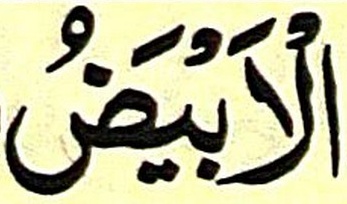 الْاَبْيَضُ